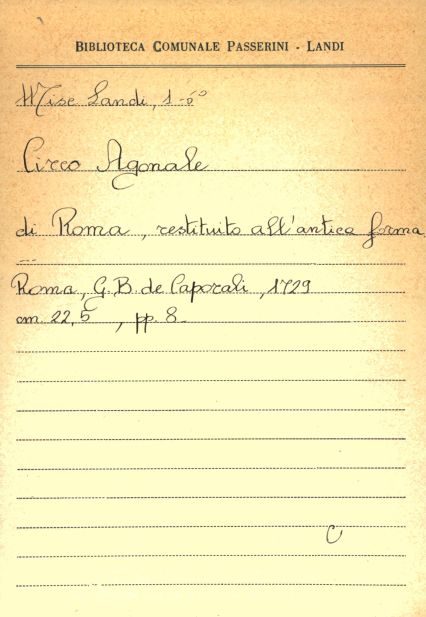 BIBLIOTECA COMUNALE PASSERINI - LANDI
Misc Landi, 1-6°
Circo Agonale
di Roma, restituito all'antica forma
...
Roma, G.B. de Caporali, 1729
cm. 22,5 , pp. 8-
C